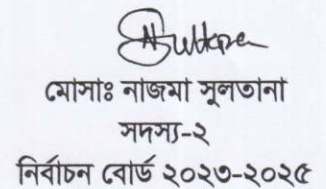 মোসাঃ নাজমা সুলতানা
সদস্য-২
নির্বাচন বোর্ড ২০২৩-২০২৫